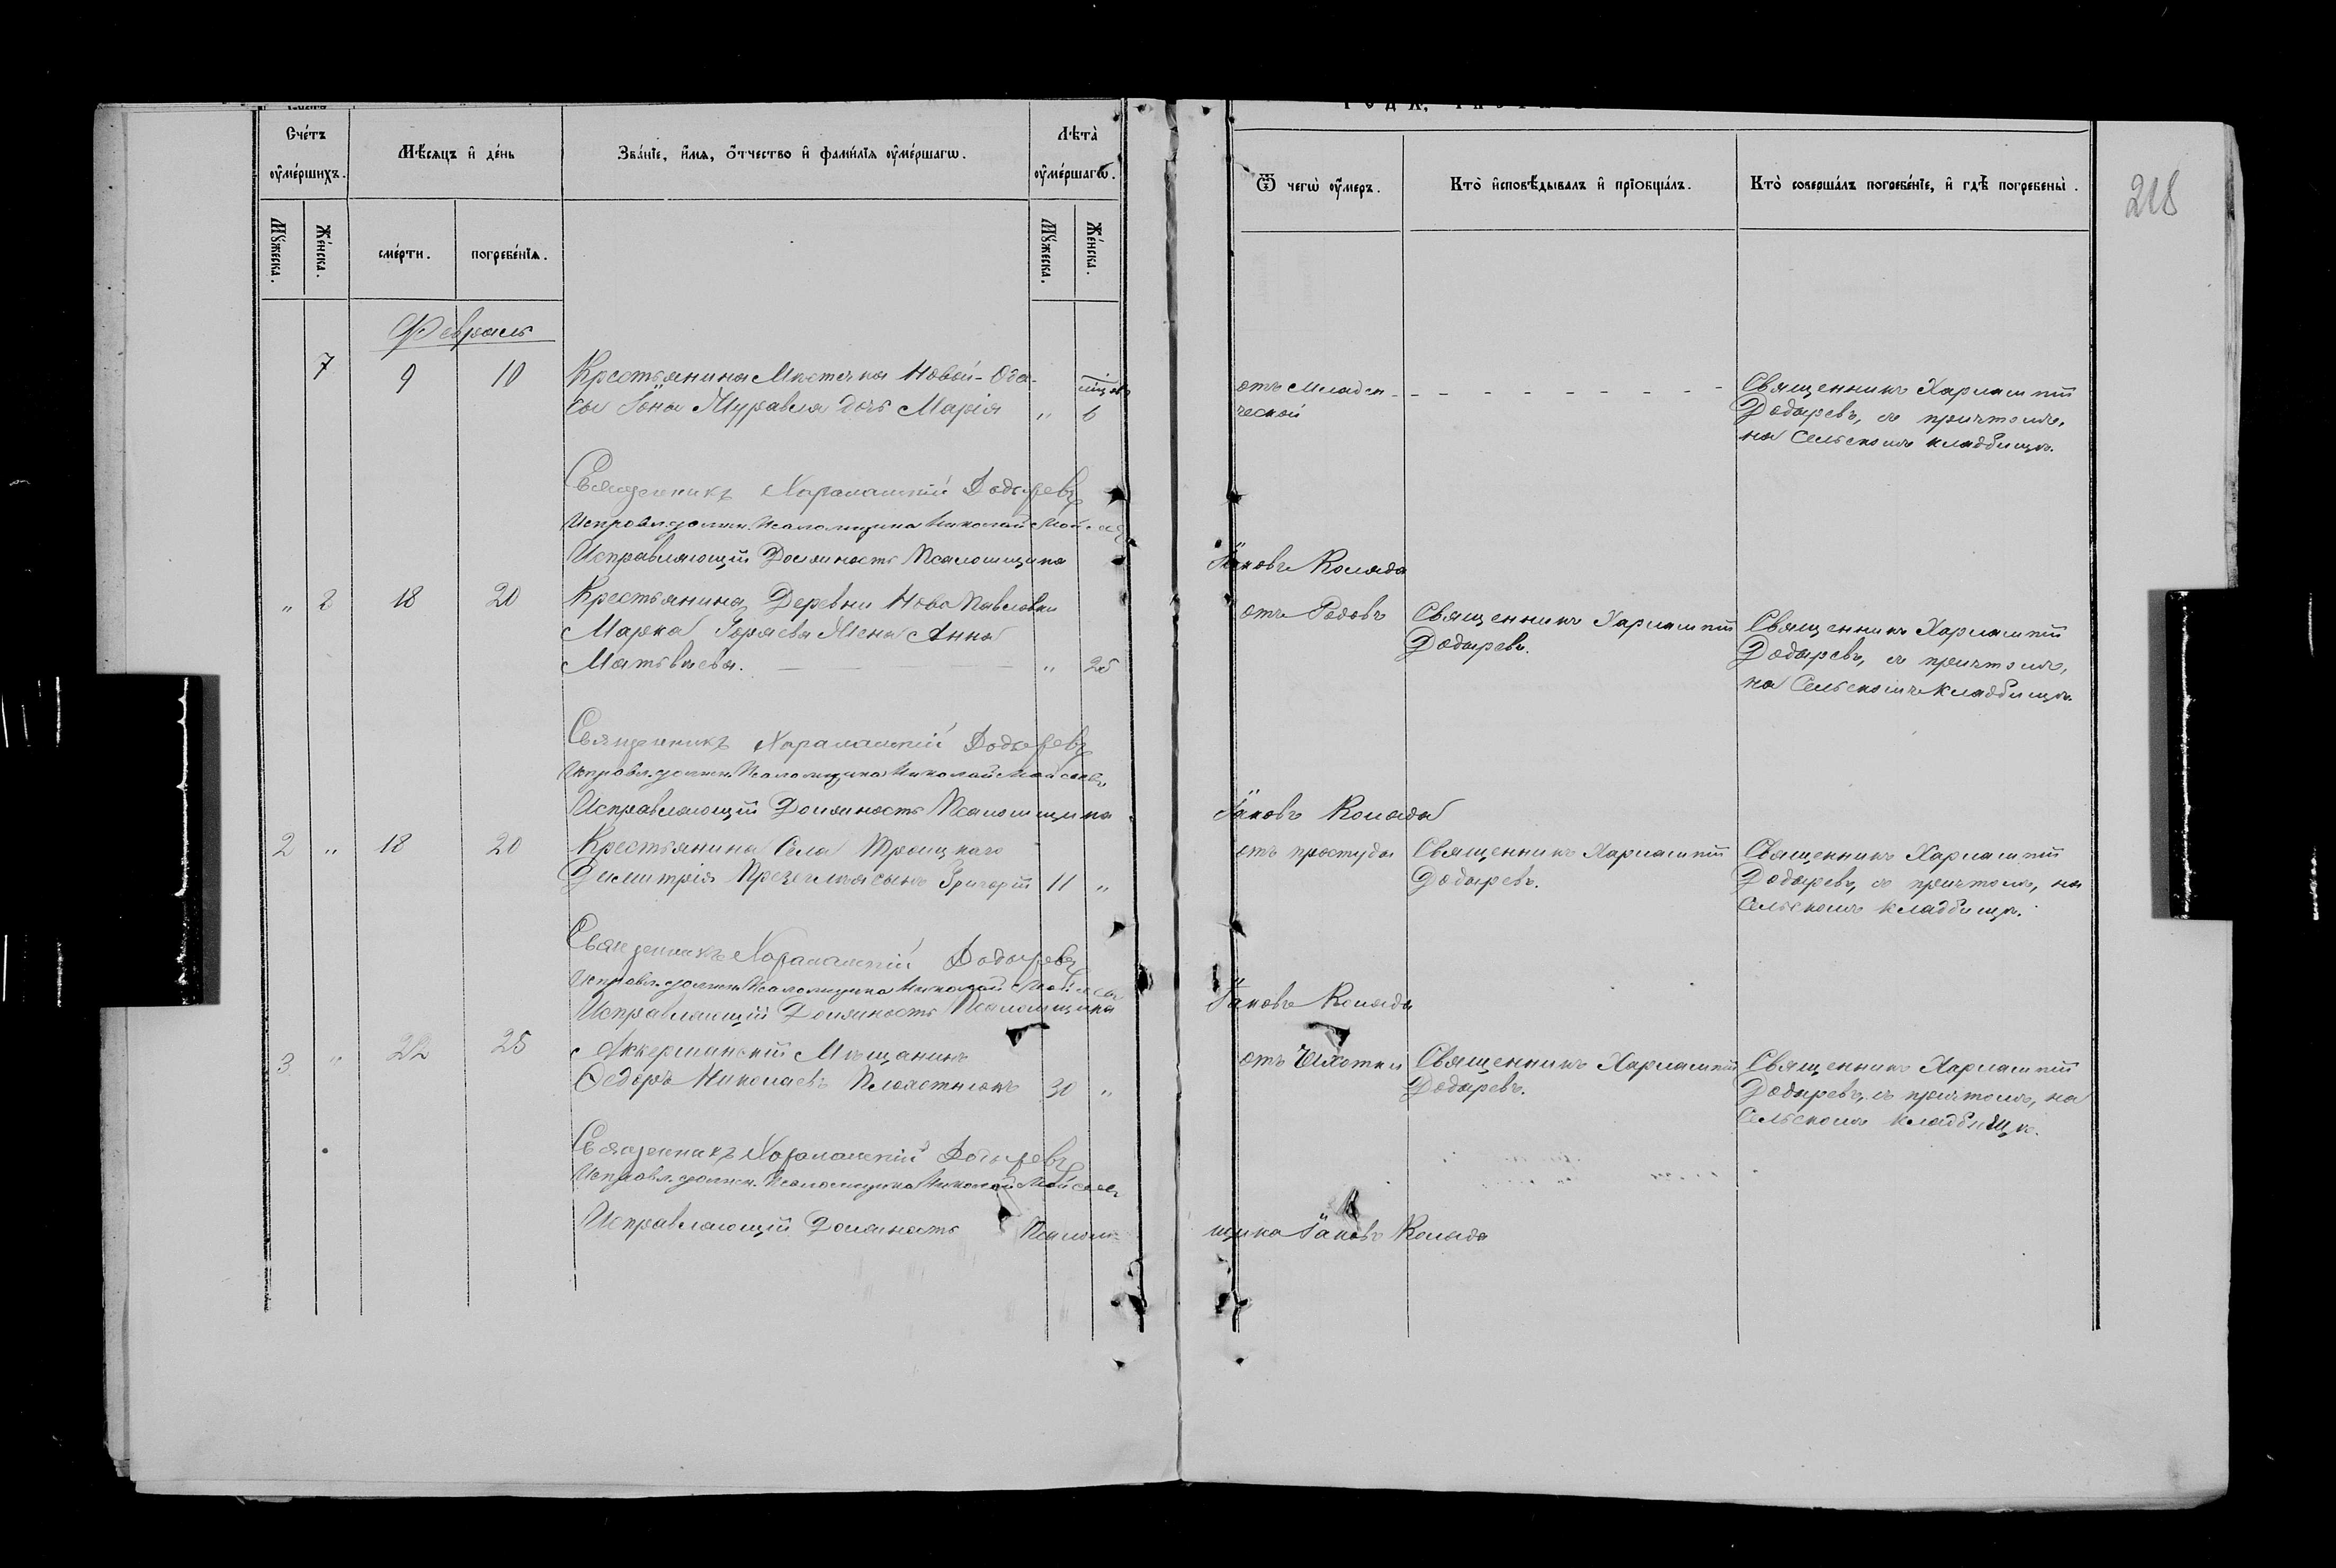 Счетъ оумершихъ.
Мѣсяцъ и день
Званіе, имя, отчество и фамилія оумершагѡ.
Лѣта оумершагѡ.
Ѿ чегѡ оумеръ.
Кто исповѣдывалъ и пріобщалъ.
Кто совершалъ погребеніе, и гдѣ погребены.
218
Мужеска.
Женска.
смерти.
погребенія.
Мужеска.
Женска.
Февраль
7 9 10 Крестьянина Мѣстечка Новой-Оде-
сы Іона Муравля дочь Марія „ 6
отъ младен-
ческой
Священникъ Харлампій
Додыревъ, съ причтомъ,
на Сельскомъ кладбищѣ.
Священникъ Харалампій Додыревъ
Исправл. должн. Псаломщика Николай
Исправляющій Должность Псаломщика Іаковъ Коляда
„ 8 18 20 Крестьянина Деревни Ново Павловки
Марка Жена Анна
Матвѣева. „ 25
отъ Родовъ
Священникъ Харлампій
Додыревъ.
Священникъ Харлампій
Додыревъ, съ причтомъ,
на Сельскомъ кладбищѣ.
Священникъ Харалампій Додыревъ
Исправл. должн. Псаломщика Николай Мойсеевъ
Исправляющій Должность Псаломщика Іаковъ Коляда
2 „ 18 20 Крестьянина Села Троицкаго
Димитрія сынъ Григорій 11 „
отъ простуды
Священникъ Харлампій
Додыревъ.
Священникъ Харлампій
Додыревъ, съ причтомъ, на
Сельскомъ кладбищѣ.
Священникъ Харалампій Додыревъ
Исправл. должн. Псаломщика Николай
Исправляющій Должность Псаломщика Іаковъ Коляда
3 „ 22 25 Аккерманскій Мѣщанинъ
Ѳедоръ Николаевъ 30 „
отъ Чахотки
Священникъ Харлампій
Додыревъ.
Священникъ Харлампій
Додыревъ, съ причтомъ, на
Сельскомъ кладбищѣ.
Священникъ Харалампій Додыревъ
Исправл. должн. Псаломщика Николай Мойсеевъ
Исправляющій Должность Псалом-
щика Іаковъ Коляда